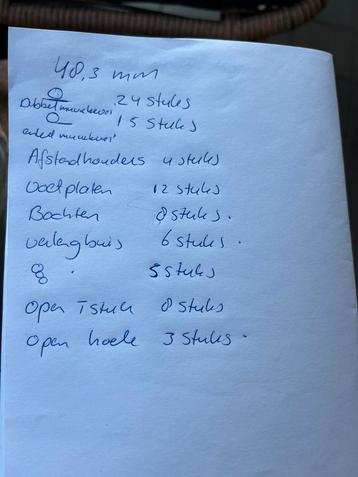 48,3 mm
24 stuks
Dubbel muurbevei
15 stuks
enkel muurbevei
Afstadhouders 4 stuks
Voetplaten 12 stuks
Bochten 8 stuks.
verlengbuis 6 stuks.
5 stuks
Open T stuk 8 stuks
Open hoek 3 stuks.